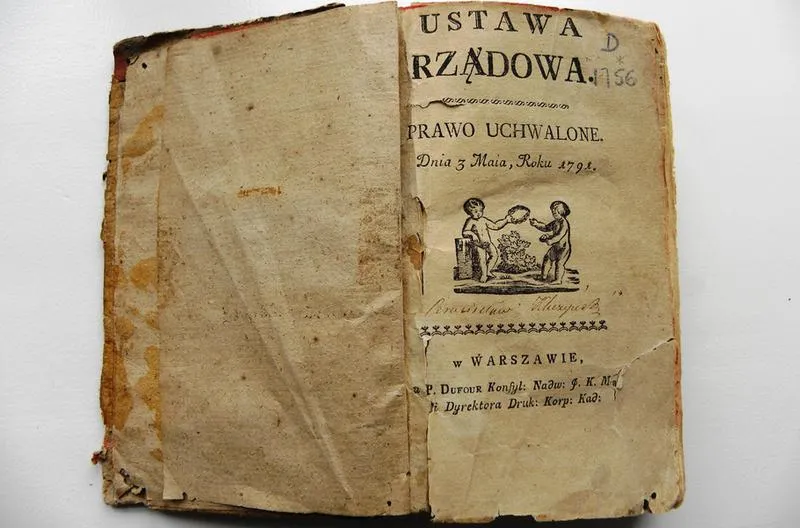 USTAWA
RZĄDOWA.
D
1756
PRAWO UCHWALONE.
Dnia 3 Maia, Roku 1791.
w WARSZAWIE,
P. DUFOUR Konsyl: Nadw: J. K. M.
i Dyrektora Druk: Korp: Kad: